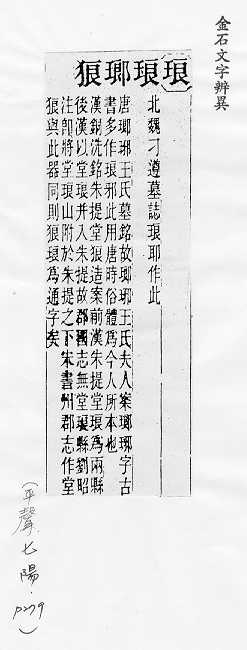 金石文字辨異
琅 琅 瑯 狼
北魏刁遵墓誌琅耶作此
唐瑯琊王氏墓銘故瑯琊王氏夫人案瑯琊字古
書多作琅邪此用唐時俗體爲今人所本也
漢銅洗銘朱提堂狼造案前漢朱提堂琅爲兩縣
後漢以堂琅并入朱提故郡國志無堂琅縣劉昭
注卽將堂琅山附於朱提之下宋書州郡志作堂
狼與此器同則狼琅爲通字矣
(平聲.七陽.P279)